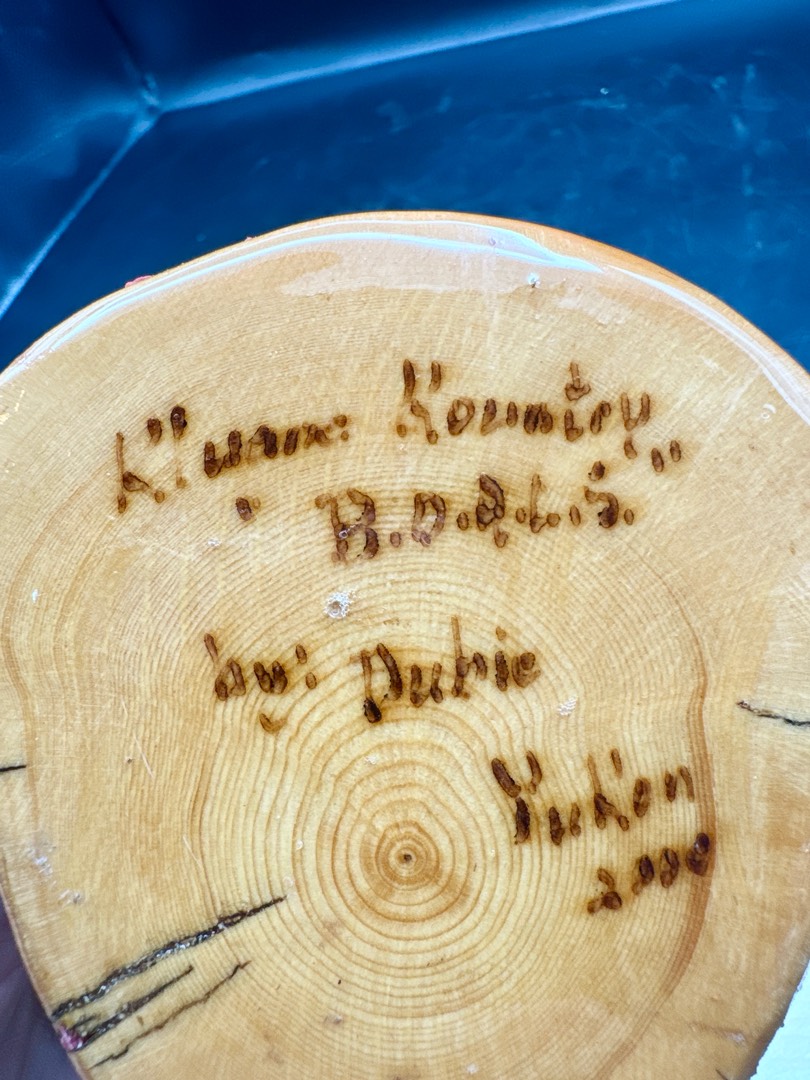 Kluane: Kountry
" B.O.R.L.S. "
by: Dubie
Yukon
2000